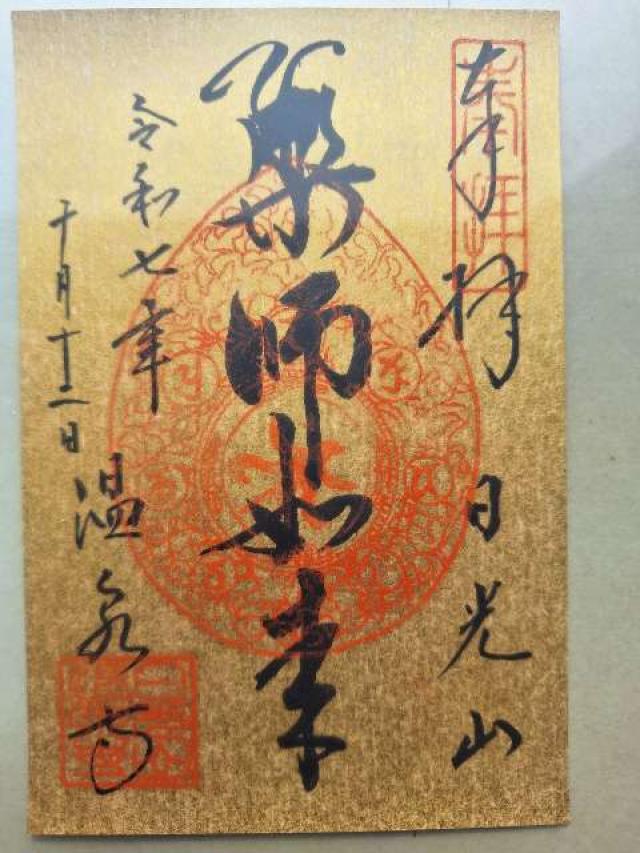 奉拝 日光山
薬師如来
令和七年
十月十二日
温泉寺
奉拝